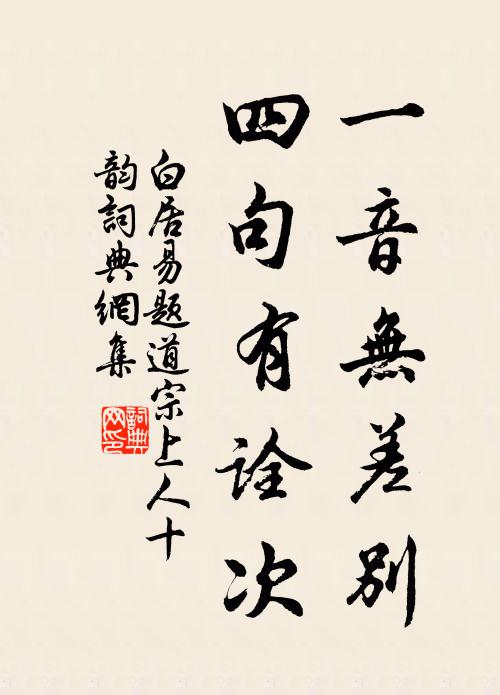 一音無差別
四句有詮次
白居易題道宗上人十
韵詞典網集
詞典
网印